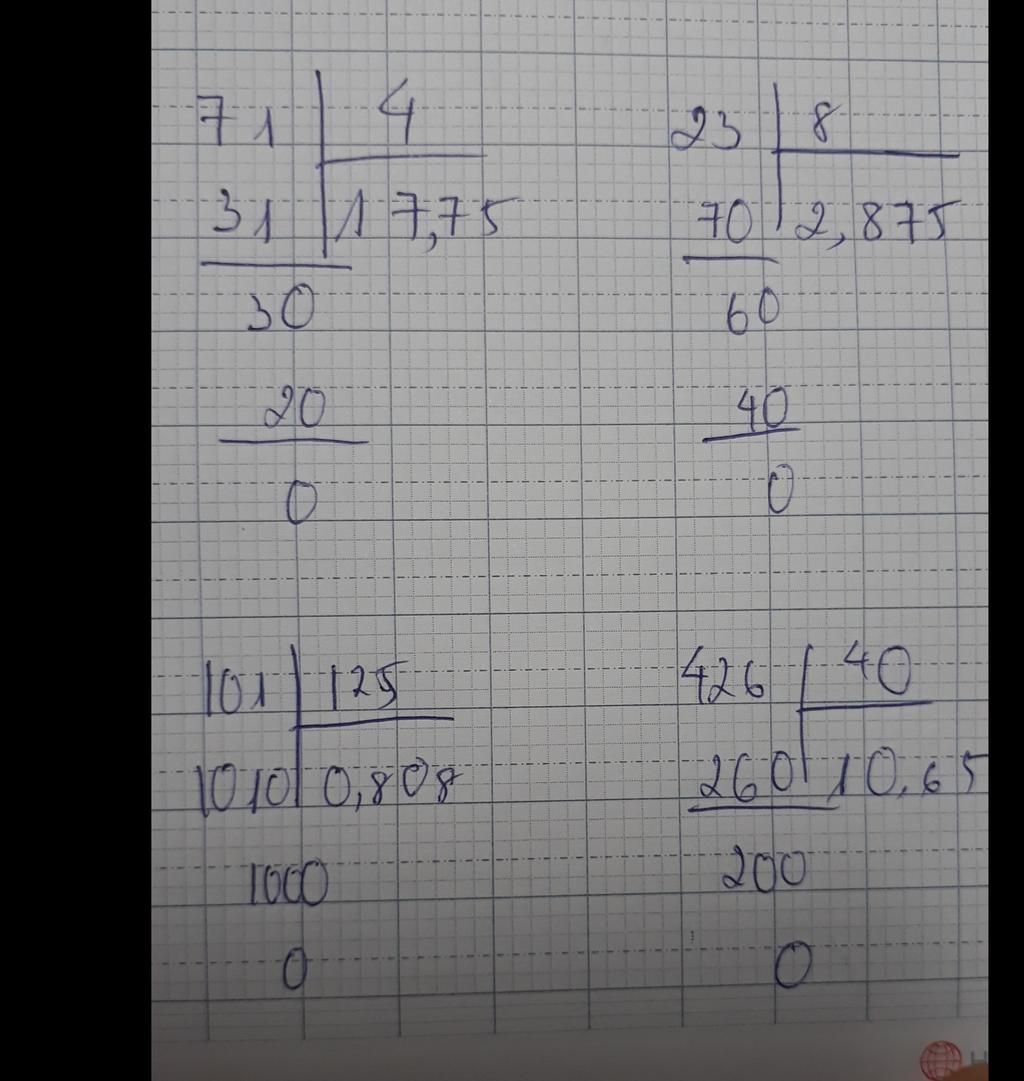 71 4
31 17,75
30
20
0
23 8
70 2,875
60
40
0
101 125
1010 0,808
1000
0
426 40
260 10,65
200
0
H